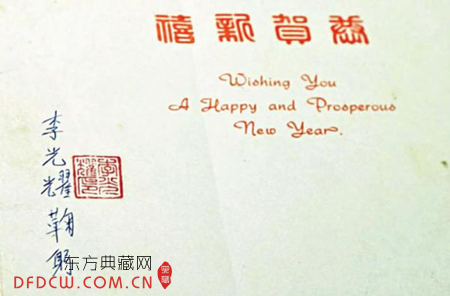 恭賀新禧
Wishing You
A Happy and Prosperous
New Year.
李光耀鞠躬
李光耀印
东方典藏网
DFDCW.COM.CN